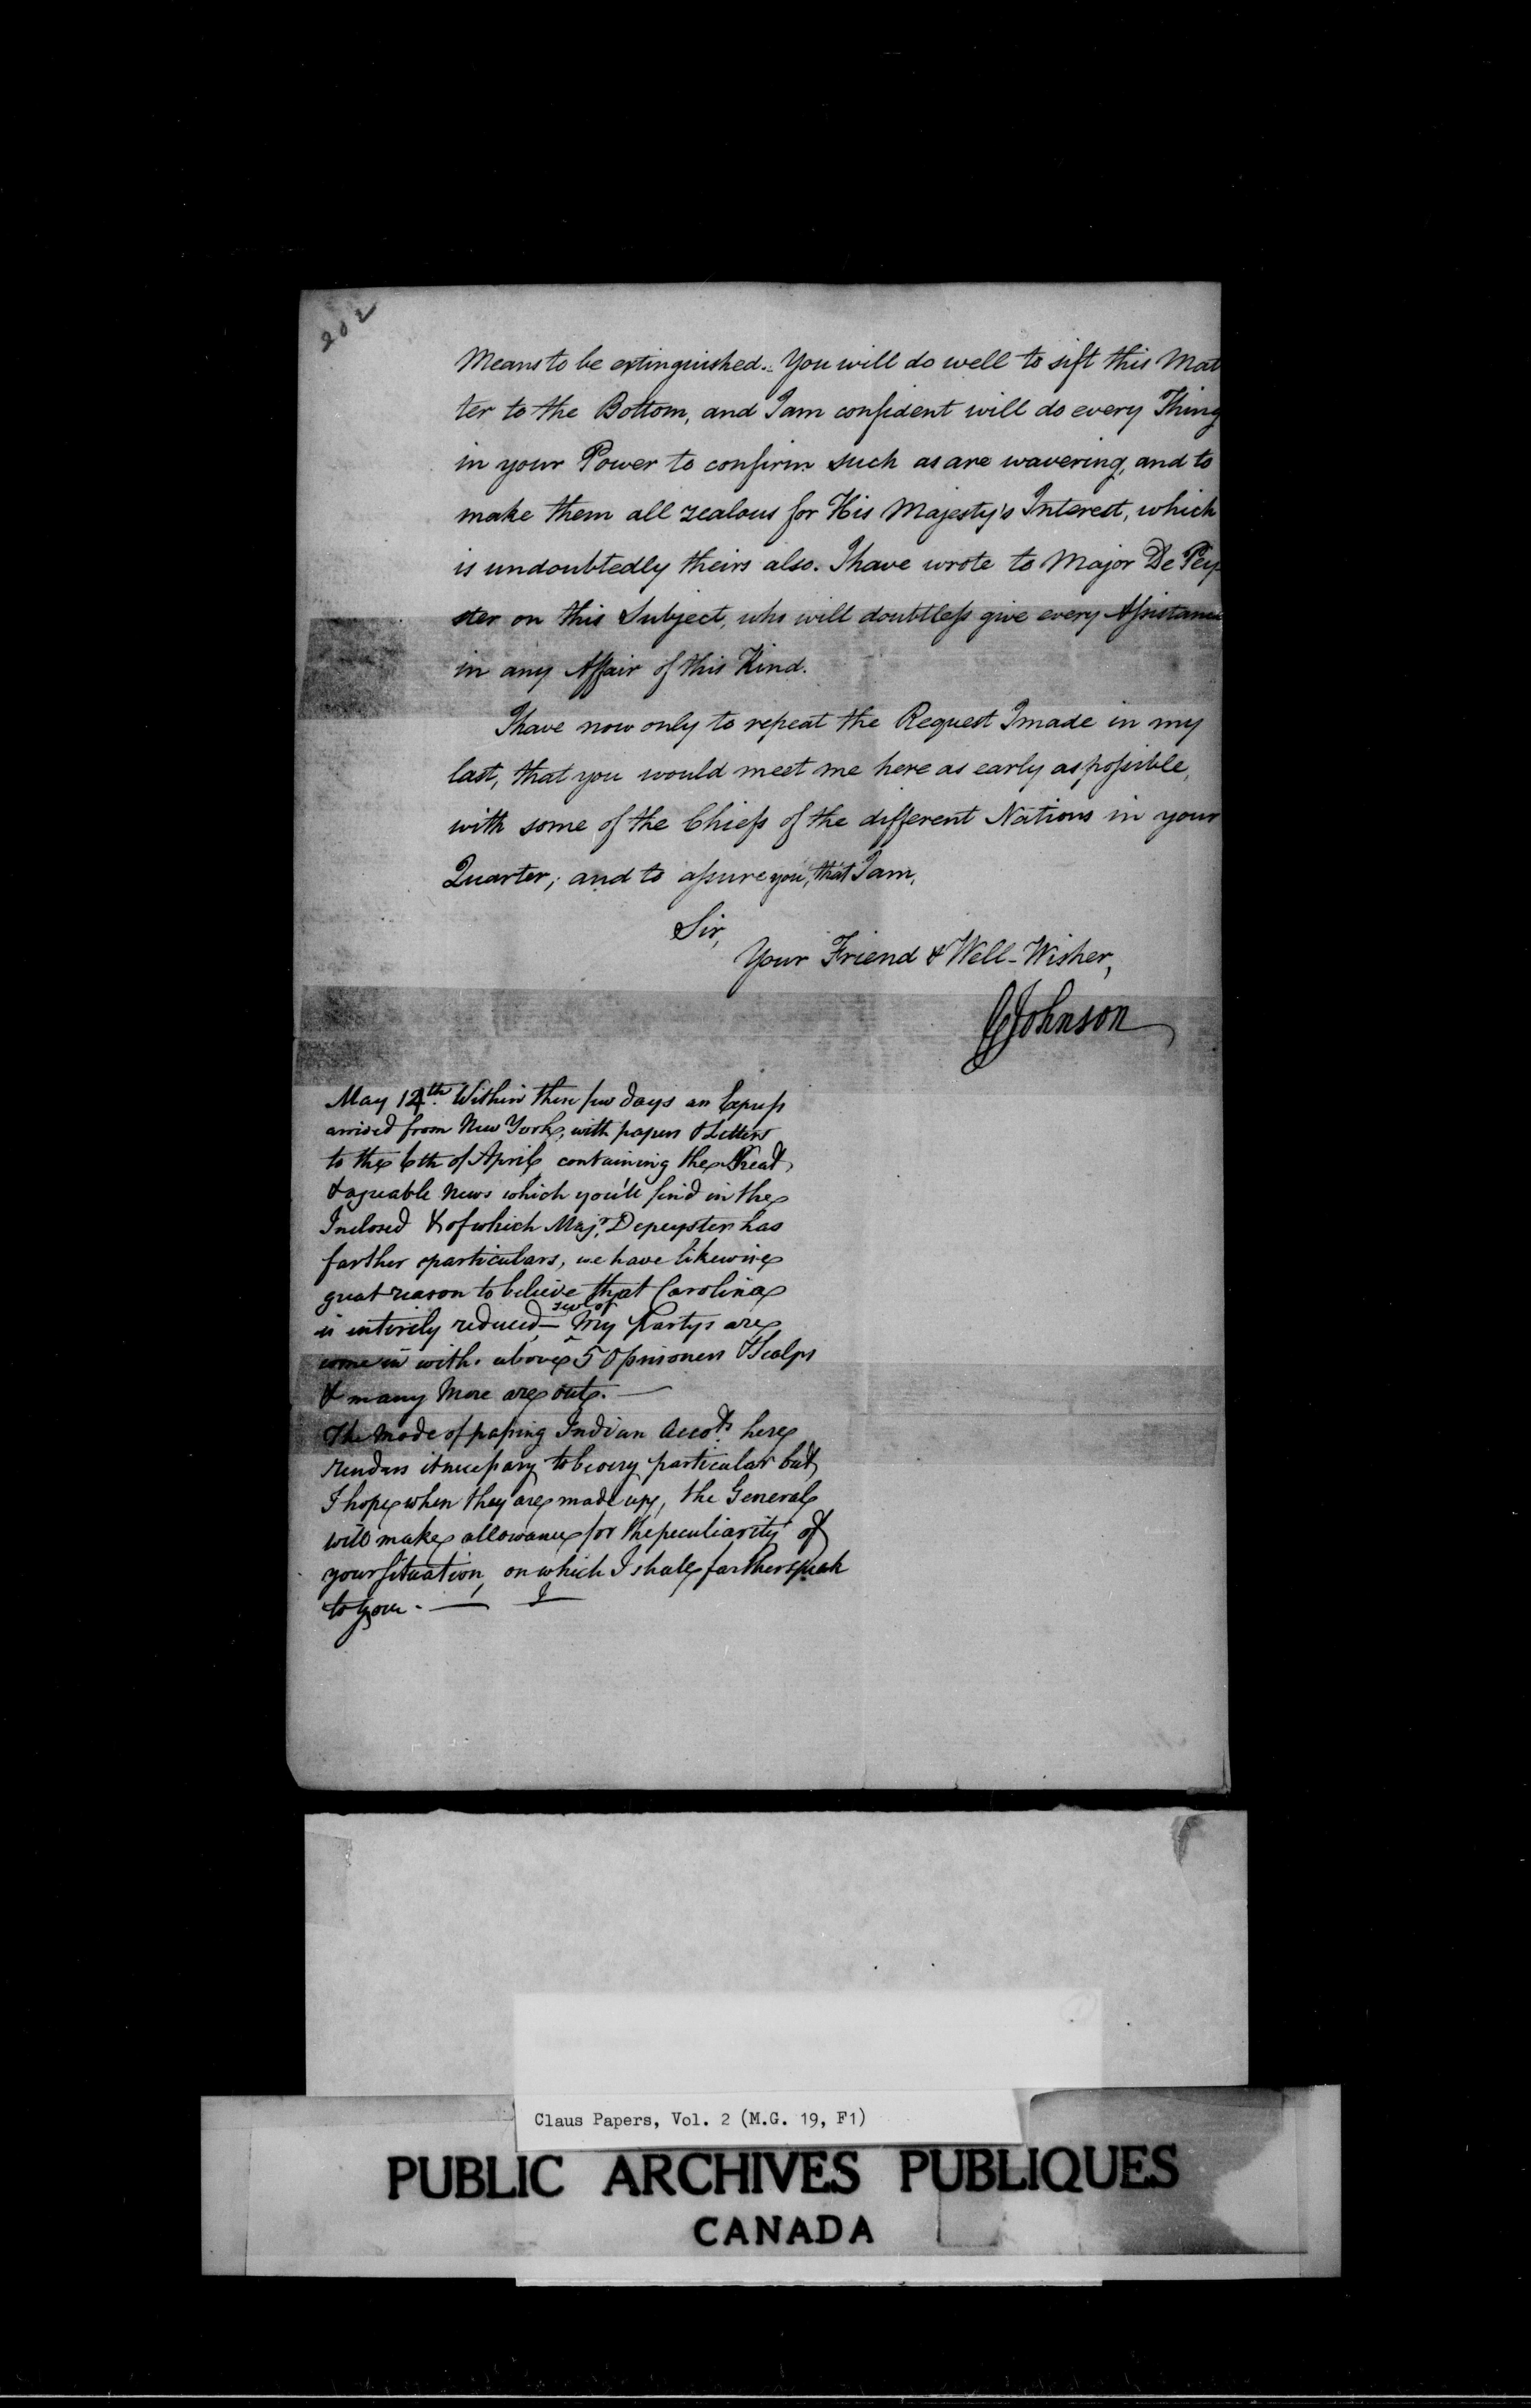 202
Means to be extinguished. You will do well to sift this Mat
ter to the Bottom, and I am confident will do every Thing
in your Power to confirm such as are wavering, and to
make them all zealous for His Majesty's Interest, which
is undoubtedly theirs also. I have wrote to Major De Pey
ster on this Subject, who will doubtless give every Assistance
in any Affair of this Kind.
I have now only to repeat the Request I made in my
last, that you would meet me here as early as possible,
with some of the Chiefs of the different Nations in your
Quarter; and to assure you, that I am,
Sir,
Your Friend & Well-Wisher,
GJohnson
May 12th. Within these few days an Express
arrived from New York, with papers & Letters
to the 6th of April containing the Great
& agreable News which you'll find in the
Inclosed & of which Majr. Depeyster has
farther particulars, we have likewise
great reason to believe that Carolina
is entirely reduced,— sevl of My Partys are
come in with above 50 prisoners & Scalps
& many More are out. —
The Mode of passing Indian Accots. here
renders it necessary to be very particular but
I hope when they are made up, the General
will make allowance for the peculiarity of
your Situation, on which I shall farther speak
to you. —
Claus Papers, Vol. 2 (M.G. 19, F1)
PUBLIC ARCHIVES PUBLIQUES
CANADA